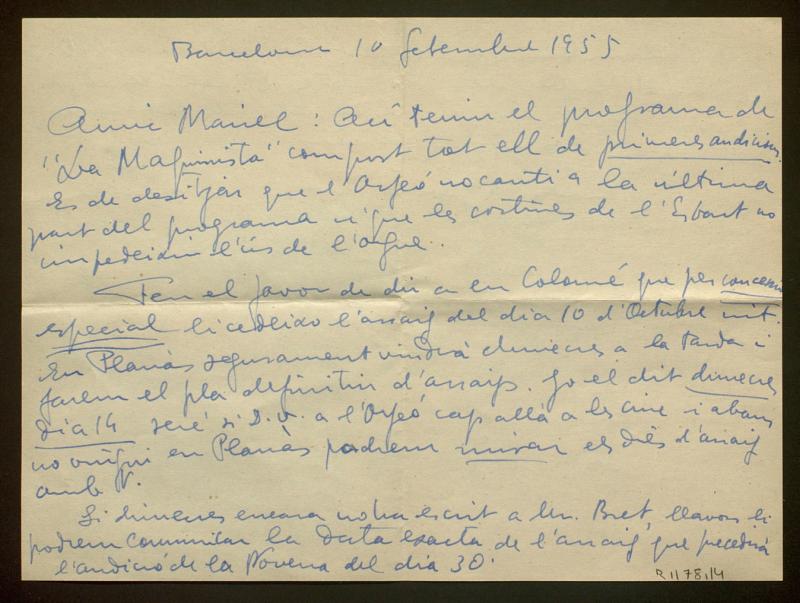 Barcelona 10 Setembre 1955
Amic Mariel: Ací tenim el programa de
"La Maquinista" compost tot ell de primeres audicions.
Es de desitjar que l'Orfeó no canti a la última
part del programa i que les cortines de l'Esbart no
impedeixin l'ús de l'orgue..
Feu el favor de dir a en Colomé que per concessió
especial li cedeixo l'assaig del dia 10 d'Octubre nit.
En Planàs segurament vindrà dimecres a la tarda i
farem el pla definitiu d'assaigs. Jo el dit dimecres
dia 14 seré si D. v. a l'Orfeó cap allà a les cinc i abans
no vingui en Planàs podrem mirar els dies d'assaig
amb V.
Si dimecres encara no ha escrit a Mr. Bret, llavors li
podrem comunicar la data exacta de l'assaig que precedirà
l'audició de la Novena del dia 30.
R 1/78/4